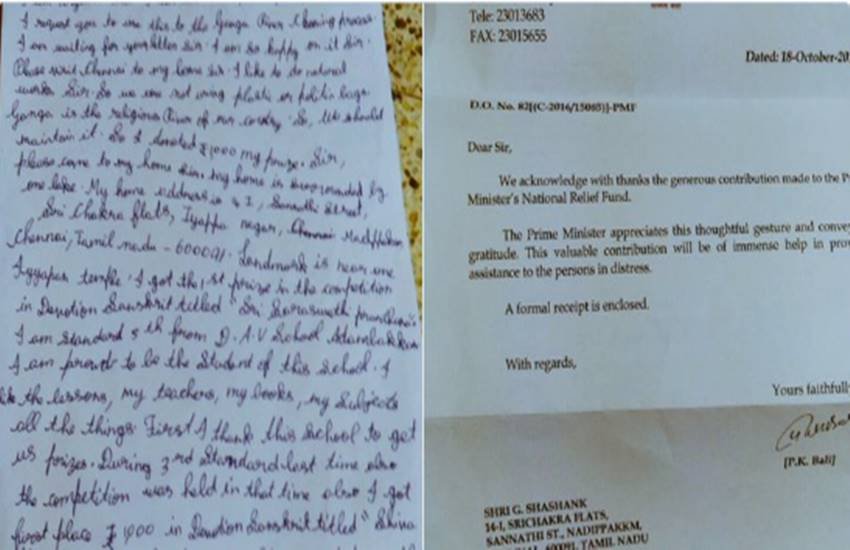 I request you to use this to the Ganga River Cleaning process.
I am waiting for your letter sir. I am so happy on it Sir.
Please visit Chennai to my home sir. I like to do natural
works Sir. So we are not using plastic or politin bags.
Ganga is the religious River of our country. So, We should
maintain it. So I donated ₹1000 my prize. Sir,
please come to my home sir. My home is surrounded by
one lake. My home address is 4 I, Sannathi Street,
Sri Chakra flats, Iyappa nagar, Chennai Madippakam
Chennai, Tamil nadu - 600091. Landmark is near one
Iyyapan temple. I got the 1st prize in the competition
in Devotion Sanskrit titled "Sri Saraswathi
I am Standard 5th from D.A.V School Adambakkam
I am proud to be the Student of this school. I
the lessons, my teachers, my books, my Subjects
all the things. First I thank this school to get
us prizes. During 3rd Standard last time also
the competition was held in that time also I got
first place ₹ 1000 in Devotion Sanskrit titled "Shiva
Tele: 23013683
FAX: 23015655
Dated: 18-October-20
D.O. No. 82[(C-2016/15085)]-PMF
Dear Sir,
We acknowledge with thanks the generous contribution made to the P
Minister's National Relief Fund.
The Prime Minister appreciates this thoughtful gesture and convey
gratitude. This valuable contribution will be of immense help in prov
assistance to the persons in distress.
A formal receipt is enclosed.
With regards,
Yours faithfull
[P.K. Bali]
SHRI G. SHASHANK
14-I, SRICHAKRA FLATS,
SANNATHI ST., NADIPPAKKM,
TAMIL NADU